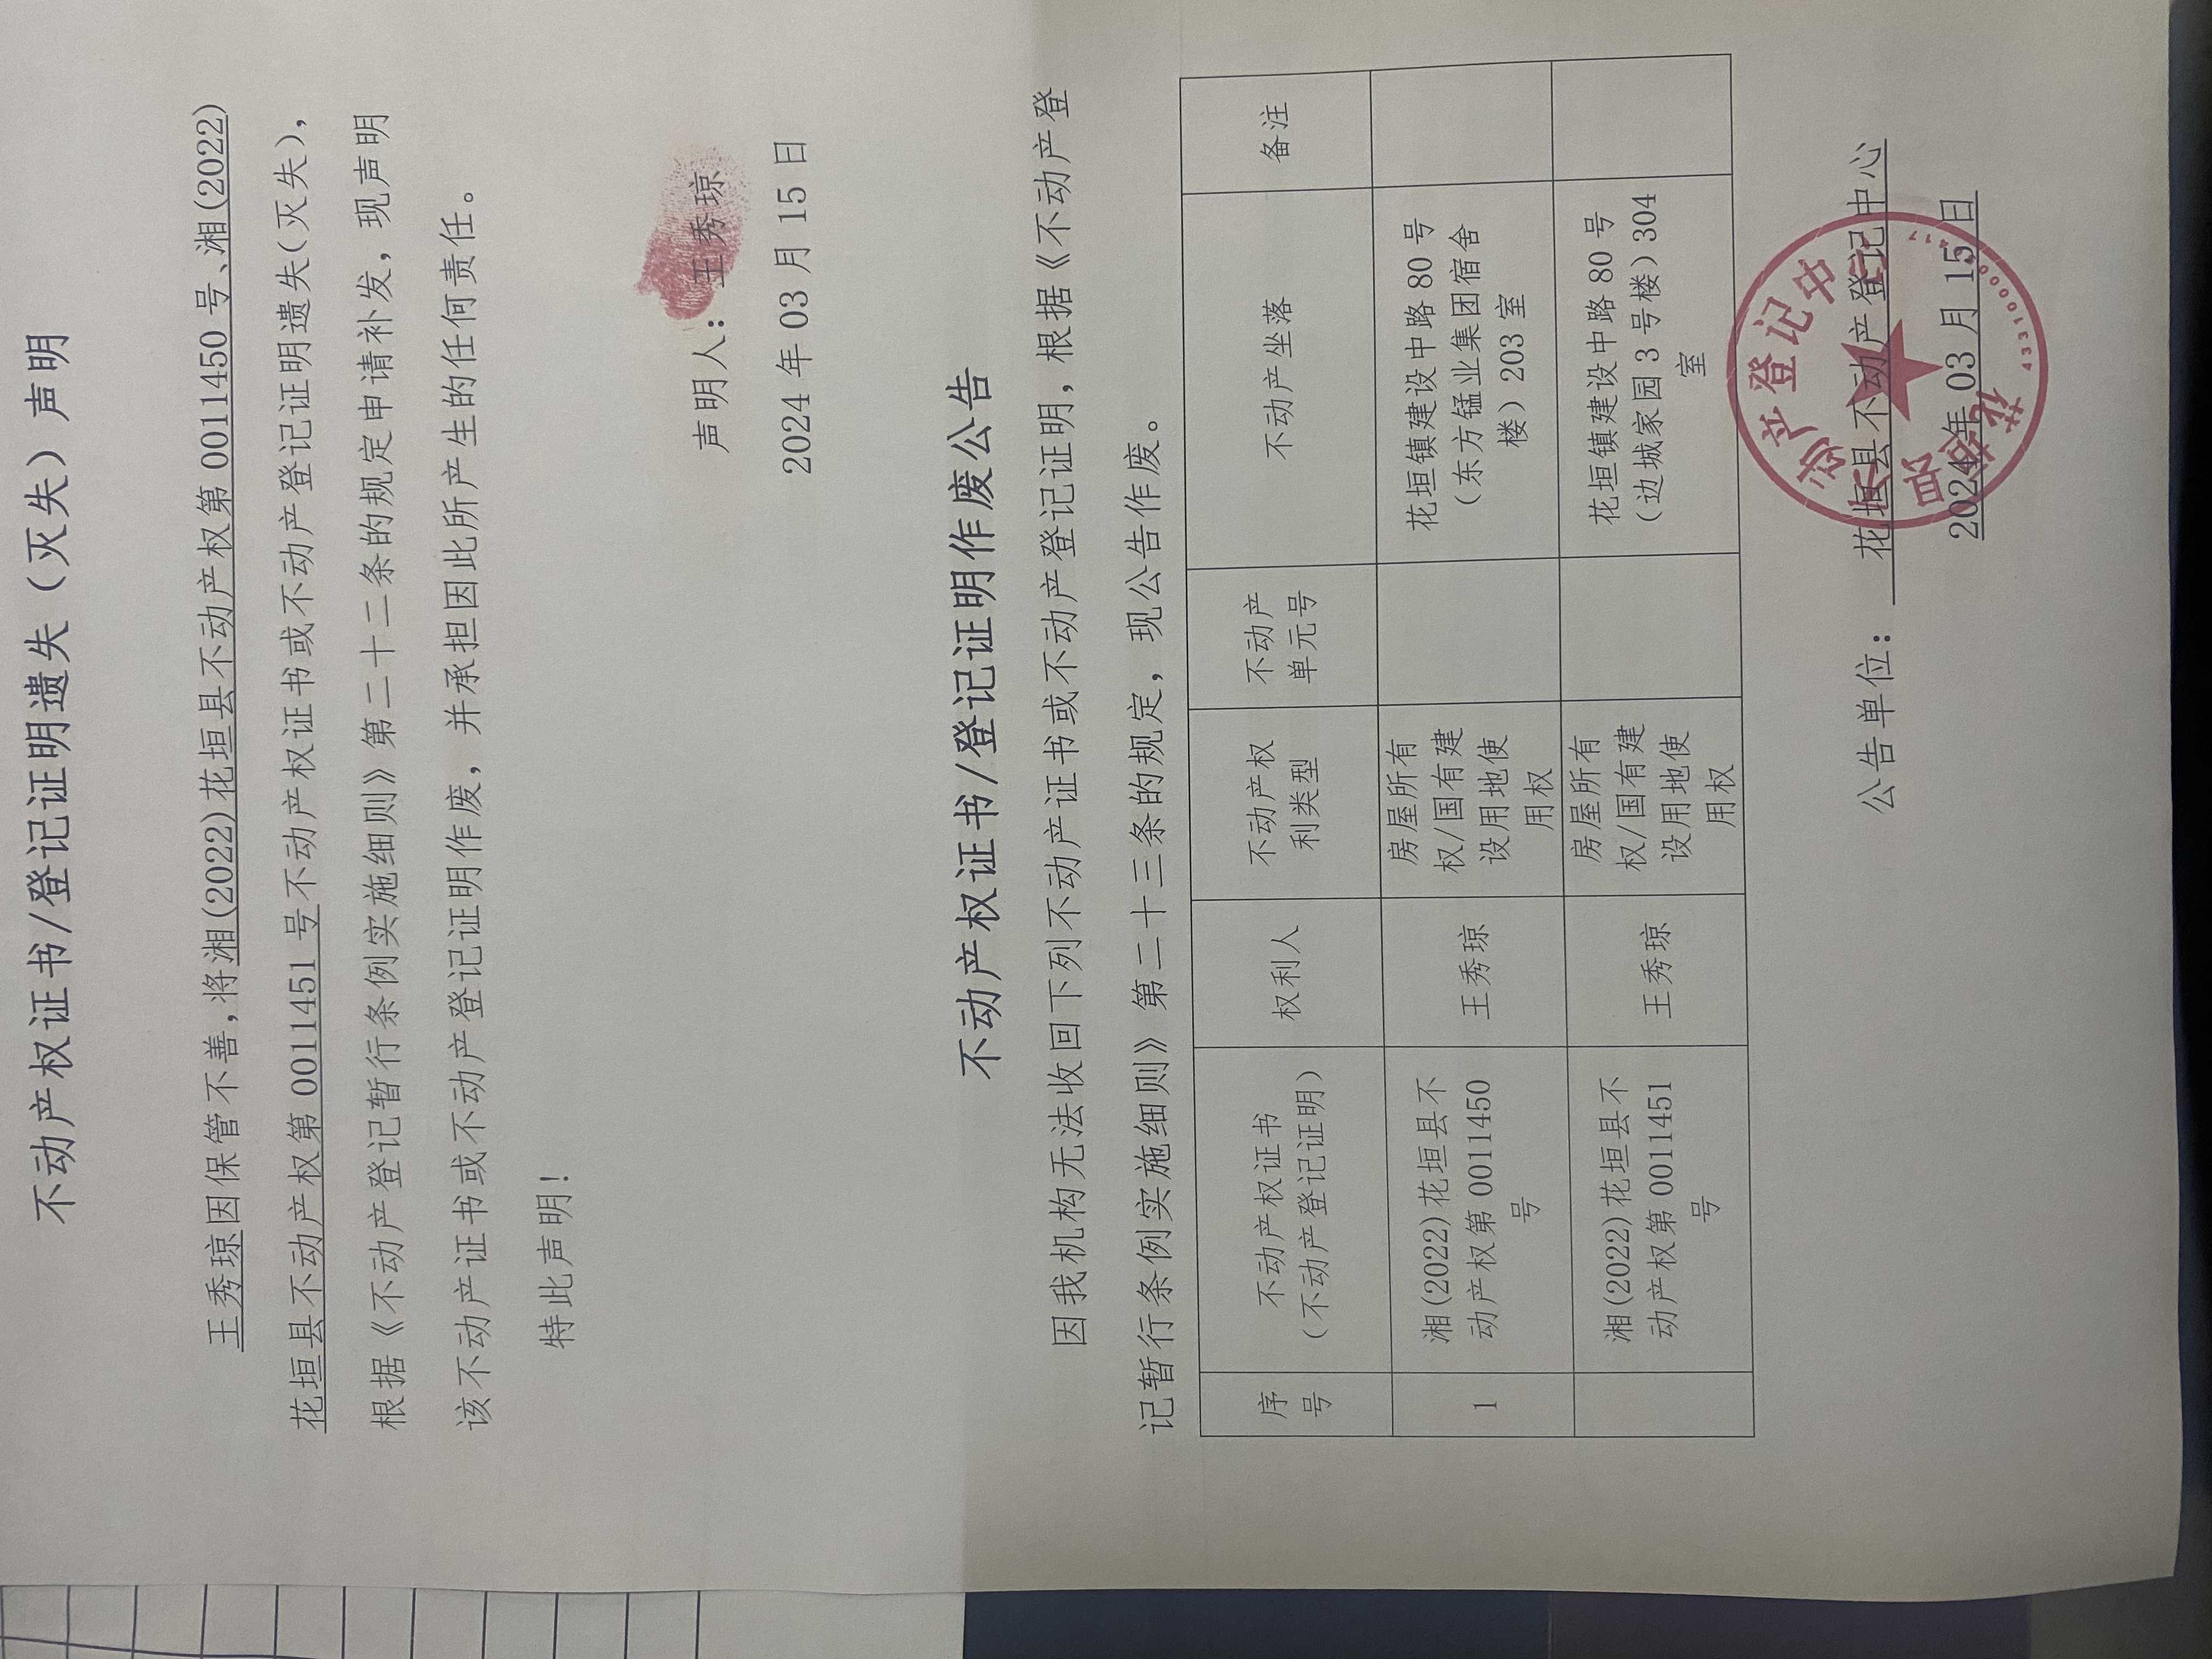 不动产权证书/登记证明遗失（灭失）声明
王秀琼因保管不善,将湘(2022)花垣县不动产权第0011450号、湘(2022)
花垣县不动产权第0011451号不动产权证书或不动产登记证明遗失(灭失),
根据《不动产登记暂行条例实施细则》第二十二条的规定申请补发，现声明
该不动产证书或不动产登记证明作废，并承担因此所产生的任何责任。
特此声明!
声明人：王秀琼
2024年03月15日
不动产权证书/登记证明作废公告
因我机构无法收回下列不动产证书或不动产登记证明，根据《不动产登
记暂行条例实施细则》第二十三条的规定，现公告作废。
序
号
不动产权证书
（不动产登记证明）
权利人
不动产权
利类型
不动产
单元号
不动产坐落
备注
1
湘(2022)花垣县不
动产权第0011450
号
王秀琼
房屋所有
权/国有建
设用地使
用权
花垣镇建设中路80号
（东方锰业集团宿舍
楼）203室
湘(2022)花垣县不
动产权第0011451
号
王秀琼
房屋所有
权/国有建
设用地使
用权
花垣镇建设中路80号
（边城家园3号楼）304
室
公告单位：花垣县不动产登记中心
2024年03月15日